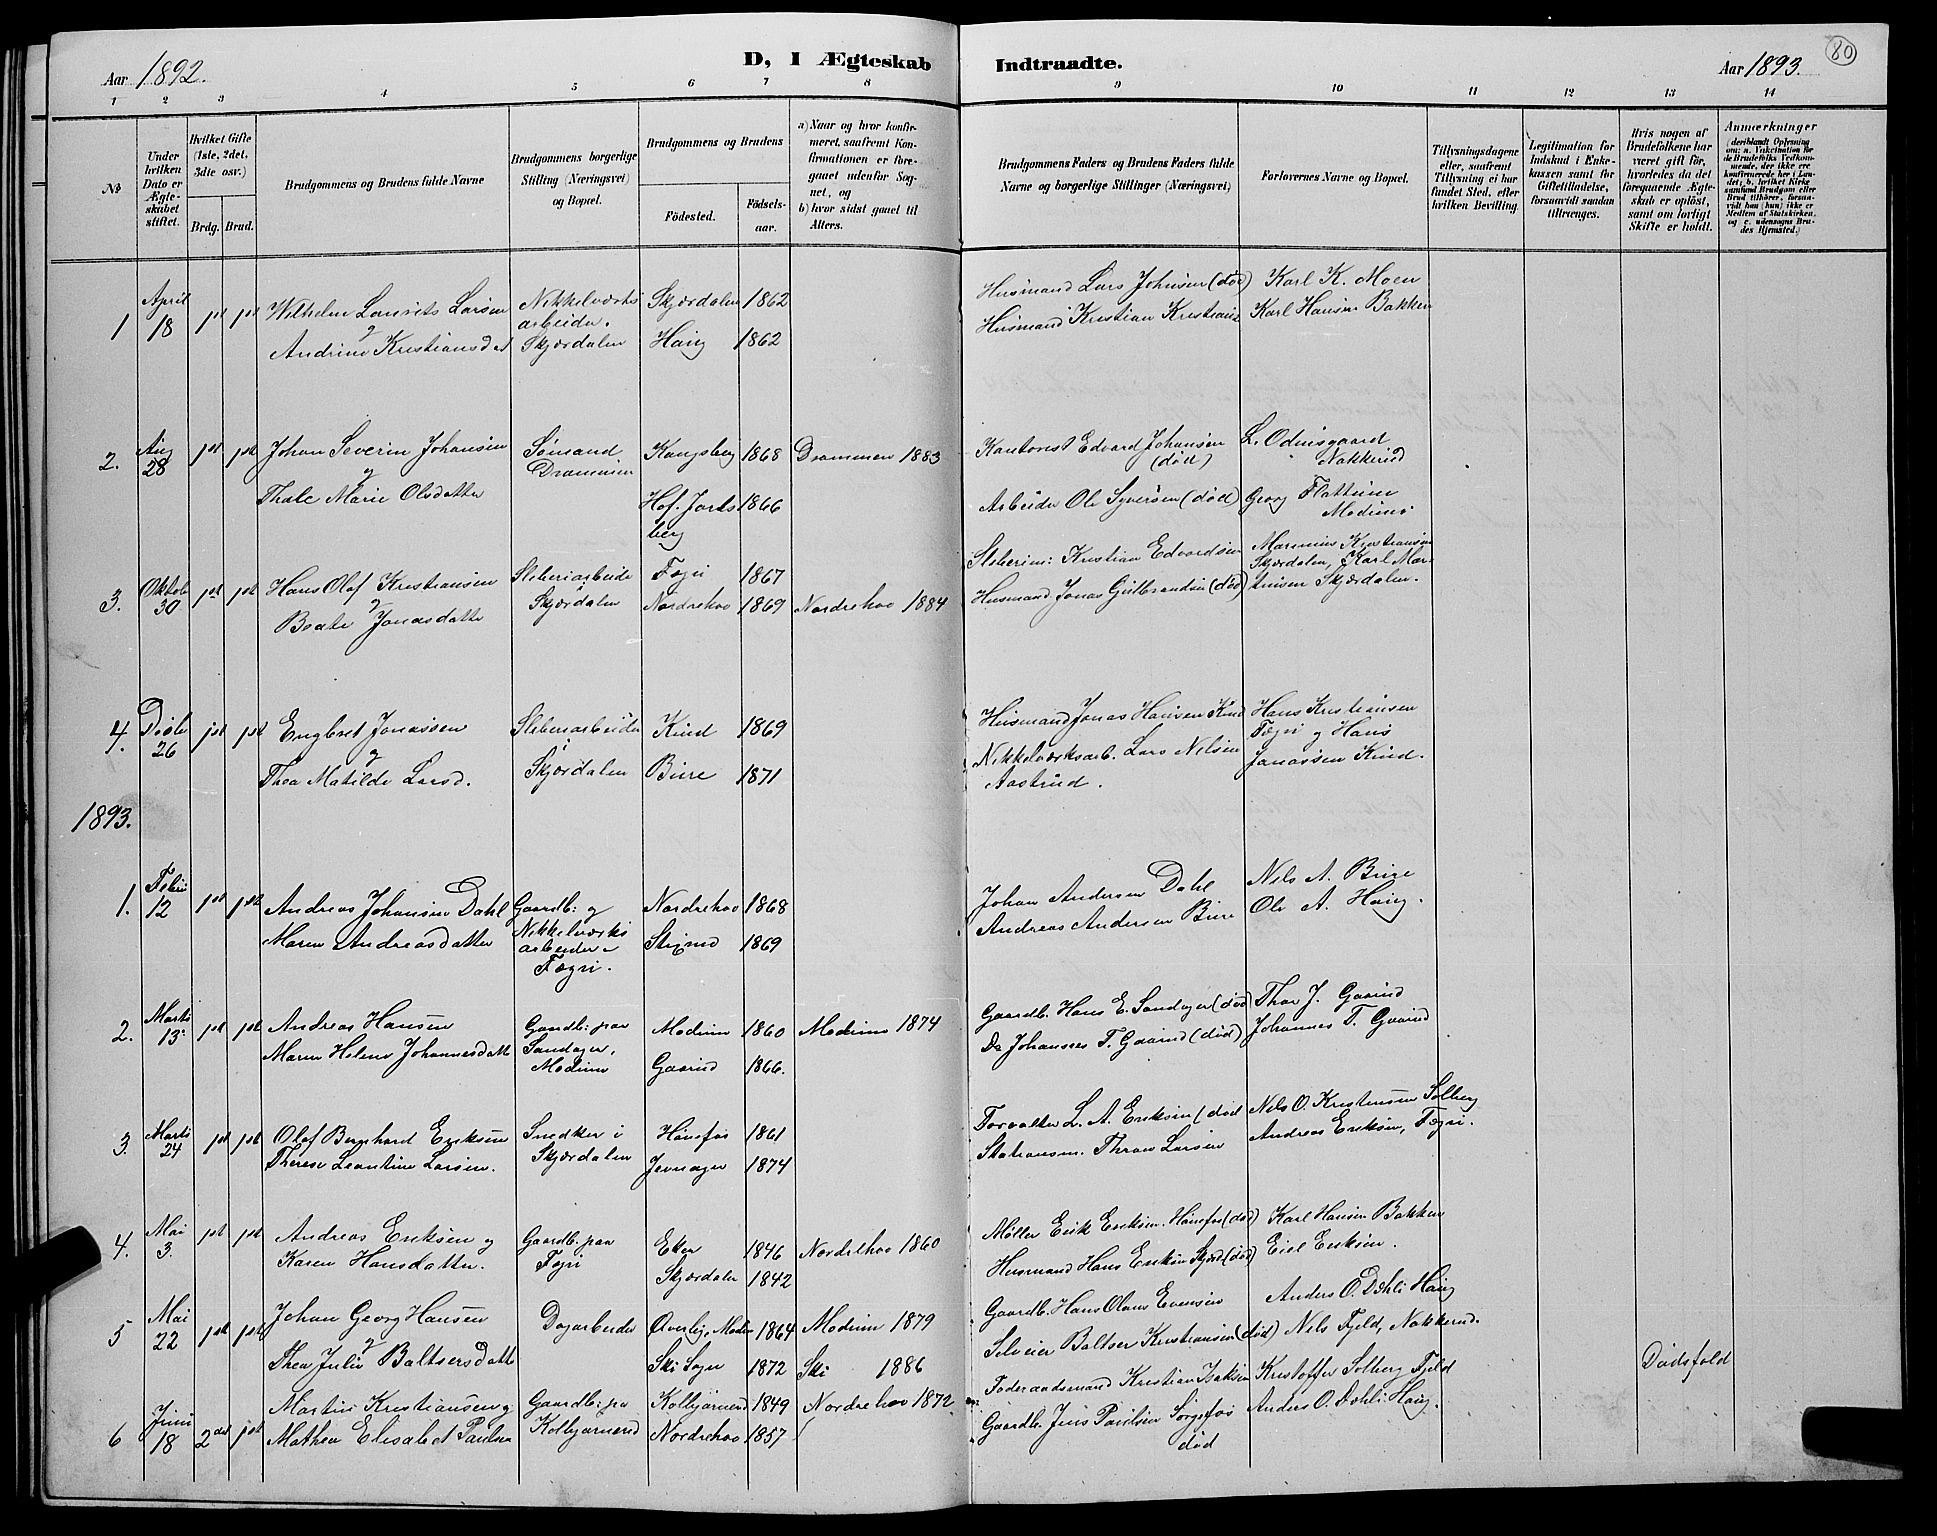 Aar 1892.
D, I Ægteskab
Indtraadte.
Aar 1893.
80
1 2 3 4 5 6 7 8
9 10 11 12 13 14
No
Under hvilken Dato er Ægteskabet stiftet.
Hvilket Gifte (1ste, 2det, 3dte osv.)
Brdg. Brud.
Brudgommens og Brudens fulde Navne
Brudgommens borgerlige Stilling (Næringsvei) og Bopæl.
Brudgommens og Brudens
Fødested.
Fødselsaar.
a) Naar og hvor konfirmeret, saafremt Konfirmationen er foregaaet udenfor Sognet, og
b) hvor sidst gaaet til Alters.
Brudgommens Faders og Brudens Faders fulde Navne og borgerlige Stillinger (Næringsvei)
Forlovernes Navne og Bopæl.
Tillysningsdagene eller, saafremt Tillysning ei har fundet Sted, efter hvilken Bevilling
Legitimation for Indskud i Enkekassen samt for Giftetilladelse, forsaavidt saadan tiltrænges.
Hvis nogen af Brudefolkene har været gift før, hvorledes da det foregaaende Ægteskab er opløst, samt om lovligt Skifte er holdt.
Anmærkninger
(deriblandt Oplysning om: a. Vakcination for de Brudefolks Vedkommende, der ikke ere konfirmerede her i Landet; b. hvilket Kirkesamfund Brudgom eller Brud tilhører, forsaavidt han (hun) ikke er Medlem af Statskirken, og c. udensogns Brudes Hjemsted.)
1 April 18 1st 1st Wilhelm Laurits Larsen
g
Andrine Kristiansdat
Nikkelverks
arbeider.
Skjærdalen
Skjærdalen 1862
Haug 1862
Husmand Lars Johnsen (død)
Husmand Kristian Kristians
Karl K. Moen
Karl Hansen Bakken
2. Aug 28 1st 1st Johan Severin Johansen
g
Thale Marie Olsdatter
Sømand
Drammen
Kongsberg 1868 Drammen 1883
Hof. Jarls 1866
berg
Kontorist Edvard Johansen
(død)
Arbeider Ole Syversen (død)
L. Odinsgaard
Nakkerud
Georg Flattum
Modum
3. Oktob 30 1st 1st Hans Olaf Kristiansen
g
Beate Jonasdatter
Sliberiarbeide
Skjærdalen
Fægri 1867
Nordrehov 1869 Nordrehov 1884
Sliberim: Kristian Edvardsen
Husmand Jonas Gulbrandsen (død)
Marinius Kristiansen
Skjærdalen, Karl Mar
tinsen Skjærdalen.
4. Decbr 26 1st 1st Engebret Jonassen
g
Thea Matilde Larsd.
Sliberiarbeide
Skjærdalen
Kind 1869
Bure 1871
Husmand Jonas Hansen Kind
Nikkelværksarb. Lars Nelsen
Aastrud.
Hans Kristiansen
Fægri g Hans
Jonassen Kind.
1893.
1. Febr 12 1st 1ste Andreas Johansen Dahl
Maren Andreasdatter
Gaardb: og
Nikkelværks
arbeider
Fægri.
Nordrehov 1868
1869
Johan Andersen Dahl
Andreas Andersen Bure
Nils A. Bure
Ole A. Haug.
2. Marts 13: 1st 1st Andreas Hansen
Maren Helene Johannesdatt
Gaardb: paa
Sandager,
Modum
Modum 1860 Modum 1874
Gaarud 1866.
Gaardb. Hans E. Sandager (død)
Do Johannes T. Gaarud (død)
Thor J. Gaarud
Johannes T. Gaarud
3. Marts 24 1st 1st Olaf Bernhard Eriksen
Therese Leontine Larsen.
Snedker i
Skjærdalen
Hønefos 1861
Jevnager 1874
Forvalter L. A. Eriksen (død
Stationsm. Thron Larsen
Nils O. Kristensen Solberg
Andreas Eriksen, Fægri.
4. Mai 3. 1st 1st Andreas Eriksen g
Karen Hansdatter.
Gaardb. paa
Fægri
Eker 1846 Nordrehov 1860
Skjærdalen 1842
Møller Erik Eriksen. Hønefos (død)
Husmand Hans Eriksen Skjærd (død)
Karl Hansen Bakken
Eriksen.
5 Mai 22 1st 1st Johan Georg Hansen
g
Thea Julie Baltsersdatt
Dagarbeider
Øverby, Modum 1864 Modum 1879
Ski Sogn 1872 Ski 1886
Gaardb. Hans Olaus Evensen
Selveier Baltser Kristiansen (død)
Anders O. Dehli Haug
Nils Fjeld, Nakkerud.
6 Juni 18 2det 1st Martin Kristiansen g
Mathea Elisabet Paulsen
Gaardb: pa
Kolbjørnrud
Kolbjørnrud 1849 Nordrehov 1872
Nordrehov 1857
Føderaadsmand Kristian Isaksen
Gaardb. Jens Paulsen Sørgefos
død
Kristoffer Solberg Fjeld
Anders O. Dehli Haug.
Dødsfald